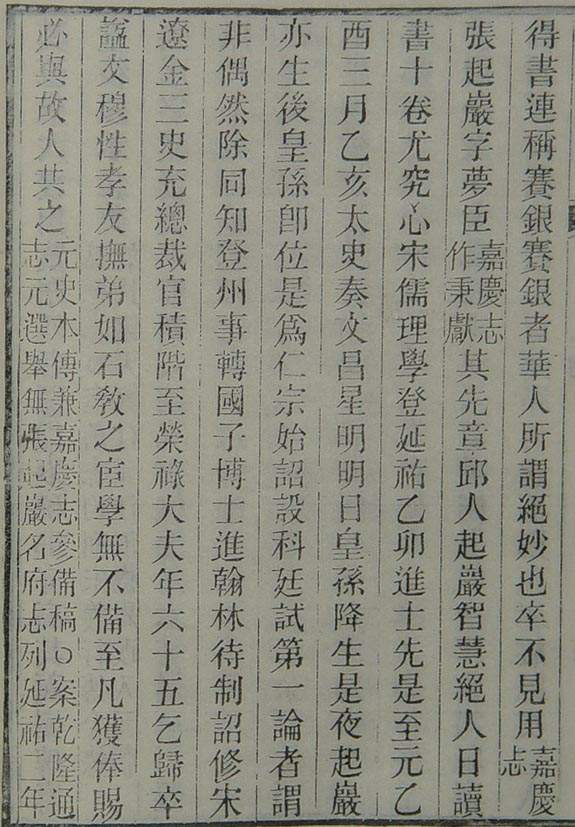 得書連稱賽銀賽銀者華人所謂絕妙也卒不見用嘉慶志
張起巖字夢臣嘉慶志作秉獻其先章邱人起巖智慧絕人日讀
書十卷尤究心宋儒理學登延祐乙卯進士先是至元乙
酉三月乙亥太史奏文昌星明明日皇孫降生是夜起巖
亦生後皇孫卽位是爲仁宗始詔設科廷試第一論者謂
非偶然除同知登州事轉國子博士進翰林待制詔修宋
遼金三史充總裁官積階至榮祿大夫年六十五乞歸卒
諡文穆性孝友撫弟如石教之宦學無不備至凡獲俸賜
必與故人共之元史本傳兼嘉慶志參備稿○案乾隆通志元選舉無張起巖名府志列延祐二年